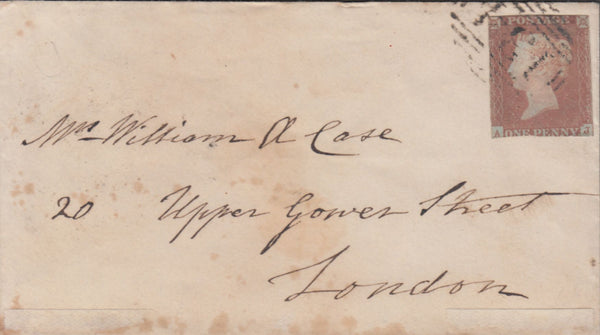 POSTAGE
ONE PENNY
A J
Mrs William A Case
20 Upper Gower Street
London